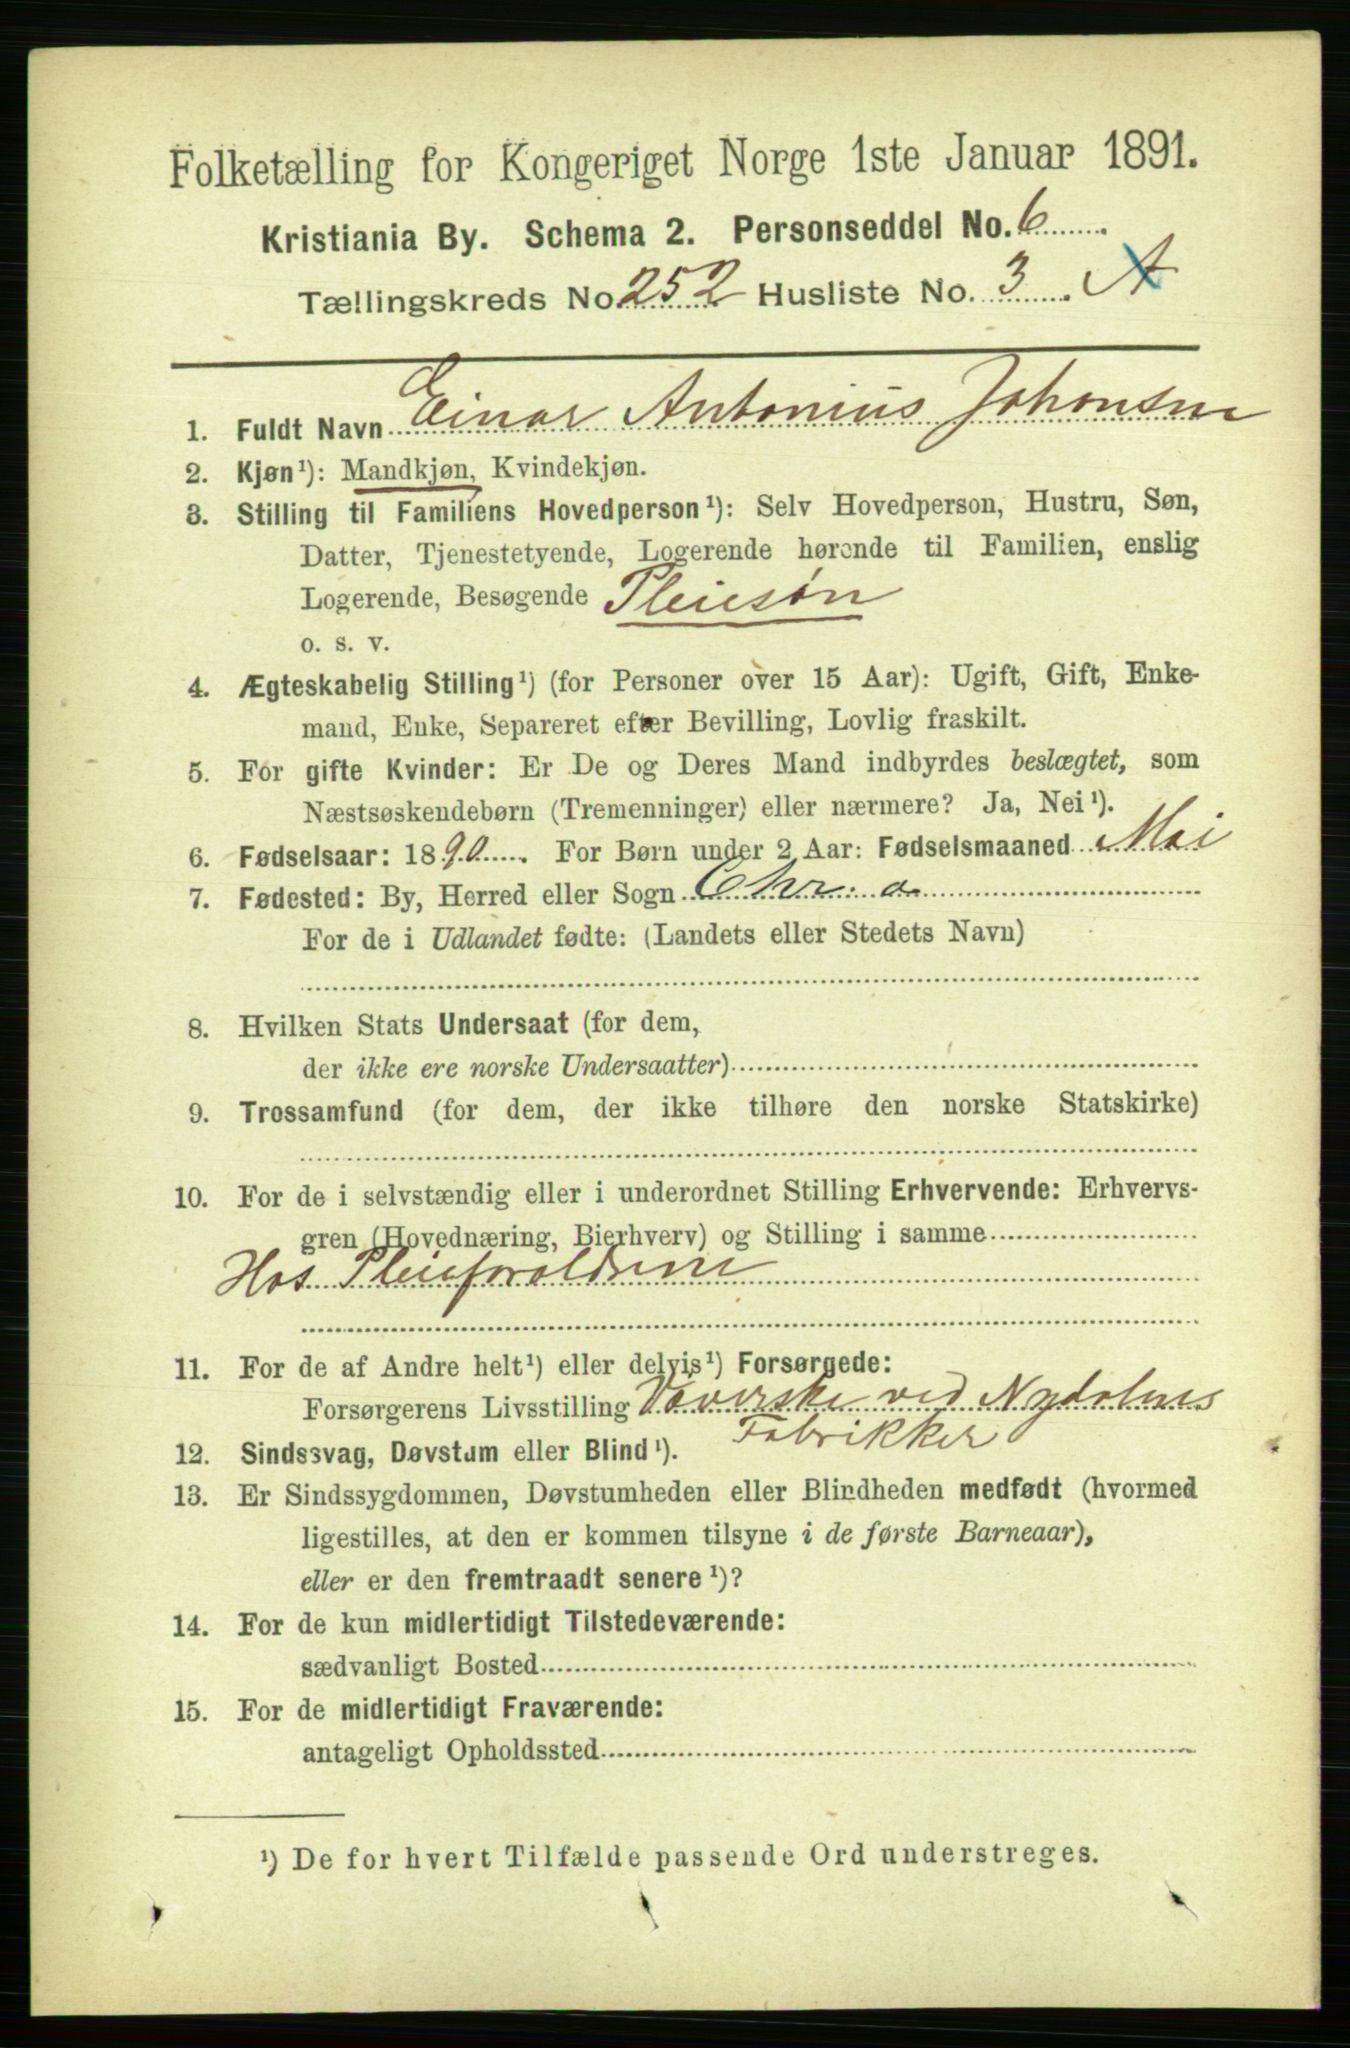 Folketælling for Kongeriget Norge 1ste Januar 1891.
Kristiania By. Schema 2. Personseddel No. 6
Tællingskreds No. 252 Husliste No. 3. A
1. Fuldt Navn Einar Antonius Johansen
2. Kjøn¹): Mandkjøn, Kvindekjøn.
3. Stilling til Familiens Hovedperson¹): Selv Hovedperson, Hustru, Søn,
Datter, Tjenestetyende, Logerende hørende til Familien, enslig
Logerende, Besøgende Pleiesøn
o. s. v.
4. Ægteskabelig Stilling¹) (for Personer over 15 Aar): Ugift, Gift, Enke-
mand, Enke, Separeret efter Bevilling, Lovlig fraskilt.
5. For gifte Kvinder: Er De og Deres Mand indbyrdes beslægtet, som
Næstsøskendebørn (Tremenninger) eller nærmere? Ja, Nei¹).
6. Fødselsaar: 1890. For Børn under 2 Aar: Fødselsmaaned Mai
7. Fødested: By, Herred eller Sogn Chr. a
For de i Udlandet fødte: (Landets eller Stedets Navn)
8. Hvilken Stats Undersaat (for dem,
der ikke ere norske Undersaatter)
9. Trossamfund (for dem, der ikke tilhøre den norske Statskirke)
10. For de i selvstændig eller i underordnet Stilling Erhvervende: Erhvervs-
gren (Hovednæring, Bierhverv) og Stilling i samme
Hos Pleieforældrene
11. For de af Andre helt¹) eller delvis¹) Forsørgede:
Forsørgerens Livsstilling Væverske ved Nydalens
Fabrikker
12. Sindssvag, Døvstum eller Blind¹).
13. Er Sindssygdommen, Døvstumheden eller Blindheden medfødt (hvormed
ligestilles, at den er kommen tilsyne i de første Barneaar),
eller er den fremtraadt senere¹)?
14. For de kun midlertidigt Tilstedeværende:
sædvanligt Bosted
15. For de midlertidigt Fraværende:
antageligt Opholdssted
¹) De for hvert Tilfælde passende Ord understreges.